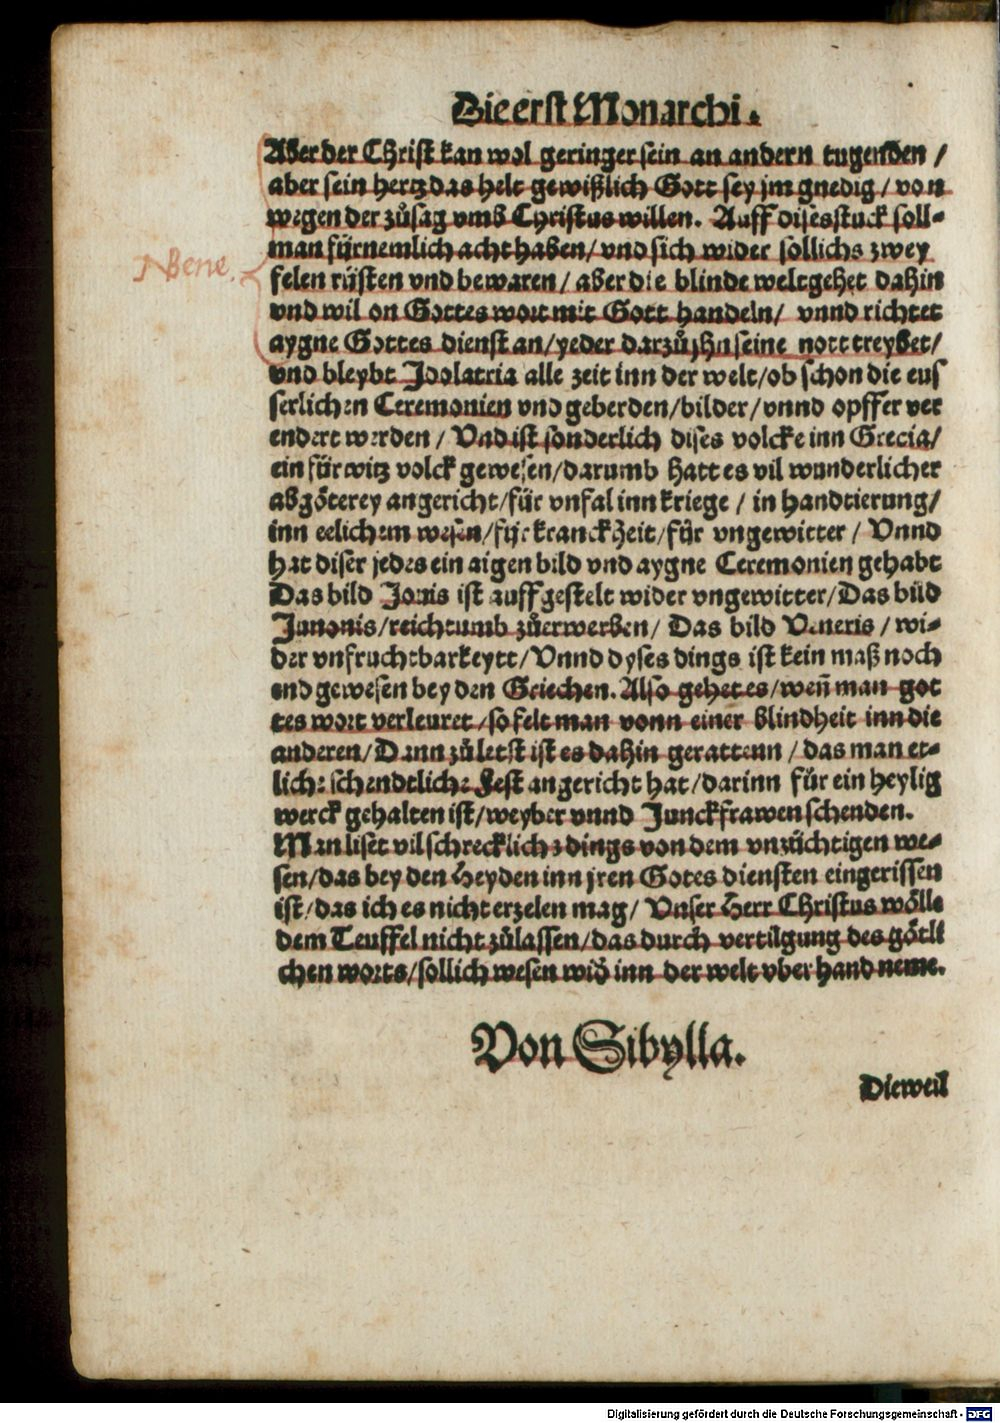 Die erst Monarchi.
Aber der Christ kan wol geringer sein an andern tugenden /
aber sein hertz das helt gewißlich Gott sey jm gnedig / von
wegen der zůsag vmb Christus willen. Auff dises stuck soll-
man fürnemlich acht haben / vnd sich wider sollichs zwey
NBene.
felen rüsten vnd bewaren / aber die blinde welt gehet dahin
vnd wil on Gottes wort mit Gott handeln / vnnd richtet
aygne Gottes dienst an / yeder darzů jhn seine nott treybet /
vnd bleybt Idolatria alle zeit inn der welt / ob schon die eus
serlichen Ceremonien vnd geberden / bilder / vnnd opffer ver
endert werden / Vnd ist sonderlich dises volck e inn Grecia /
ein fürwitz volck gewesen / darumb hatt es vil wunderlicher
abgöterey angericht / für vnfal inn kriege / in handtierung /
inn eelichem wesen / für kranckheit / für vngewitter / Vnnd
hat diser jedes ein aigen bild vnd aygne Ceremonien gehabt
Das bild Jouis ist auffgestelt wider vngewitter / Das bild
Junonis / reichtumb zůerwerben / Das bild Veneris / wi-
der vnfruchtbarkeytt / Vnnd dyses dings ist kein maß noch
end gewesen bey den Griechen. Also gehet es / wen̄ man got
tes wort verleuret / so felt man vonn einer blindheit inn die
anderen / Dann zůletst ist es dahin gerattenn / das man et-
liche schendtliche Fest angericht hat / darinn für ein heylig
werck gehalten ist / weyber vnnd Junckfrawen schenden.
Man liset vil schrecklichs dings von dem vnzüchtigen we-
sen / das bey den Heyden inn jren Gotes diensten eingerissen
ist / das ich es nicht erzelen mag / Vnser Herr Christus wölle
dem Teuffel nicht zůlassen / das durch vertilgung des götli
chen worts / sollich wesen wid inn der welt vberhand neme.
Von Sibylla.
Dieweil
Digitalisierung gefördert durch die Deutsche Forschungsgemeinschaft - DFG